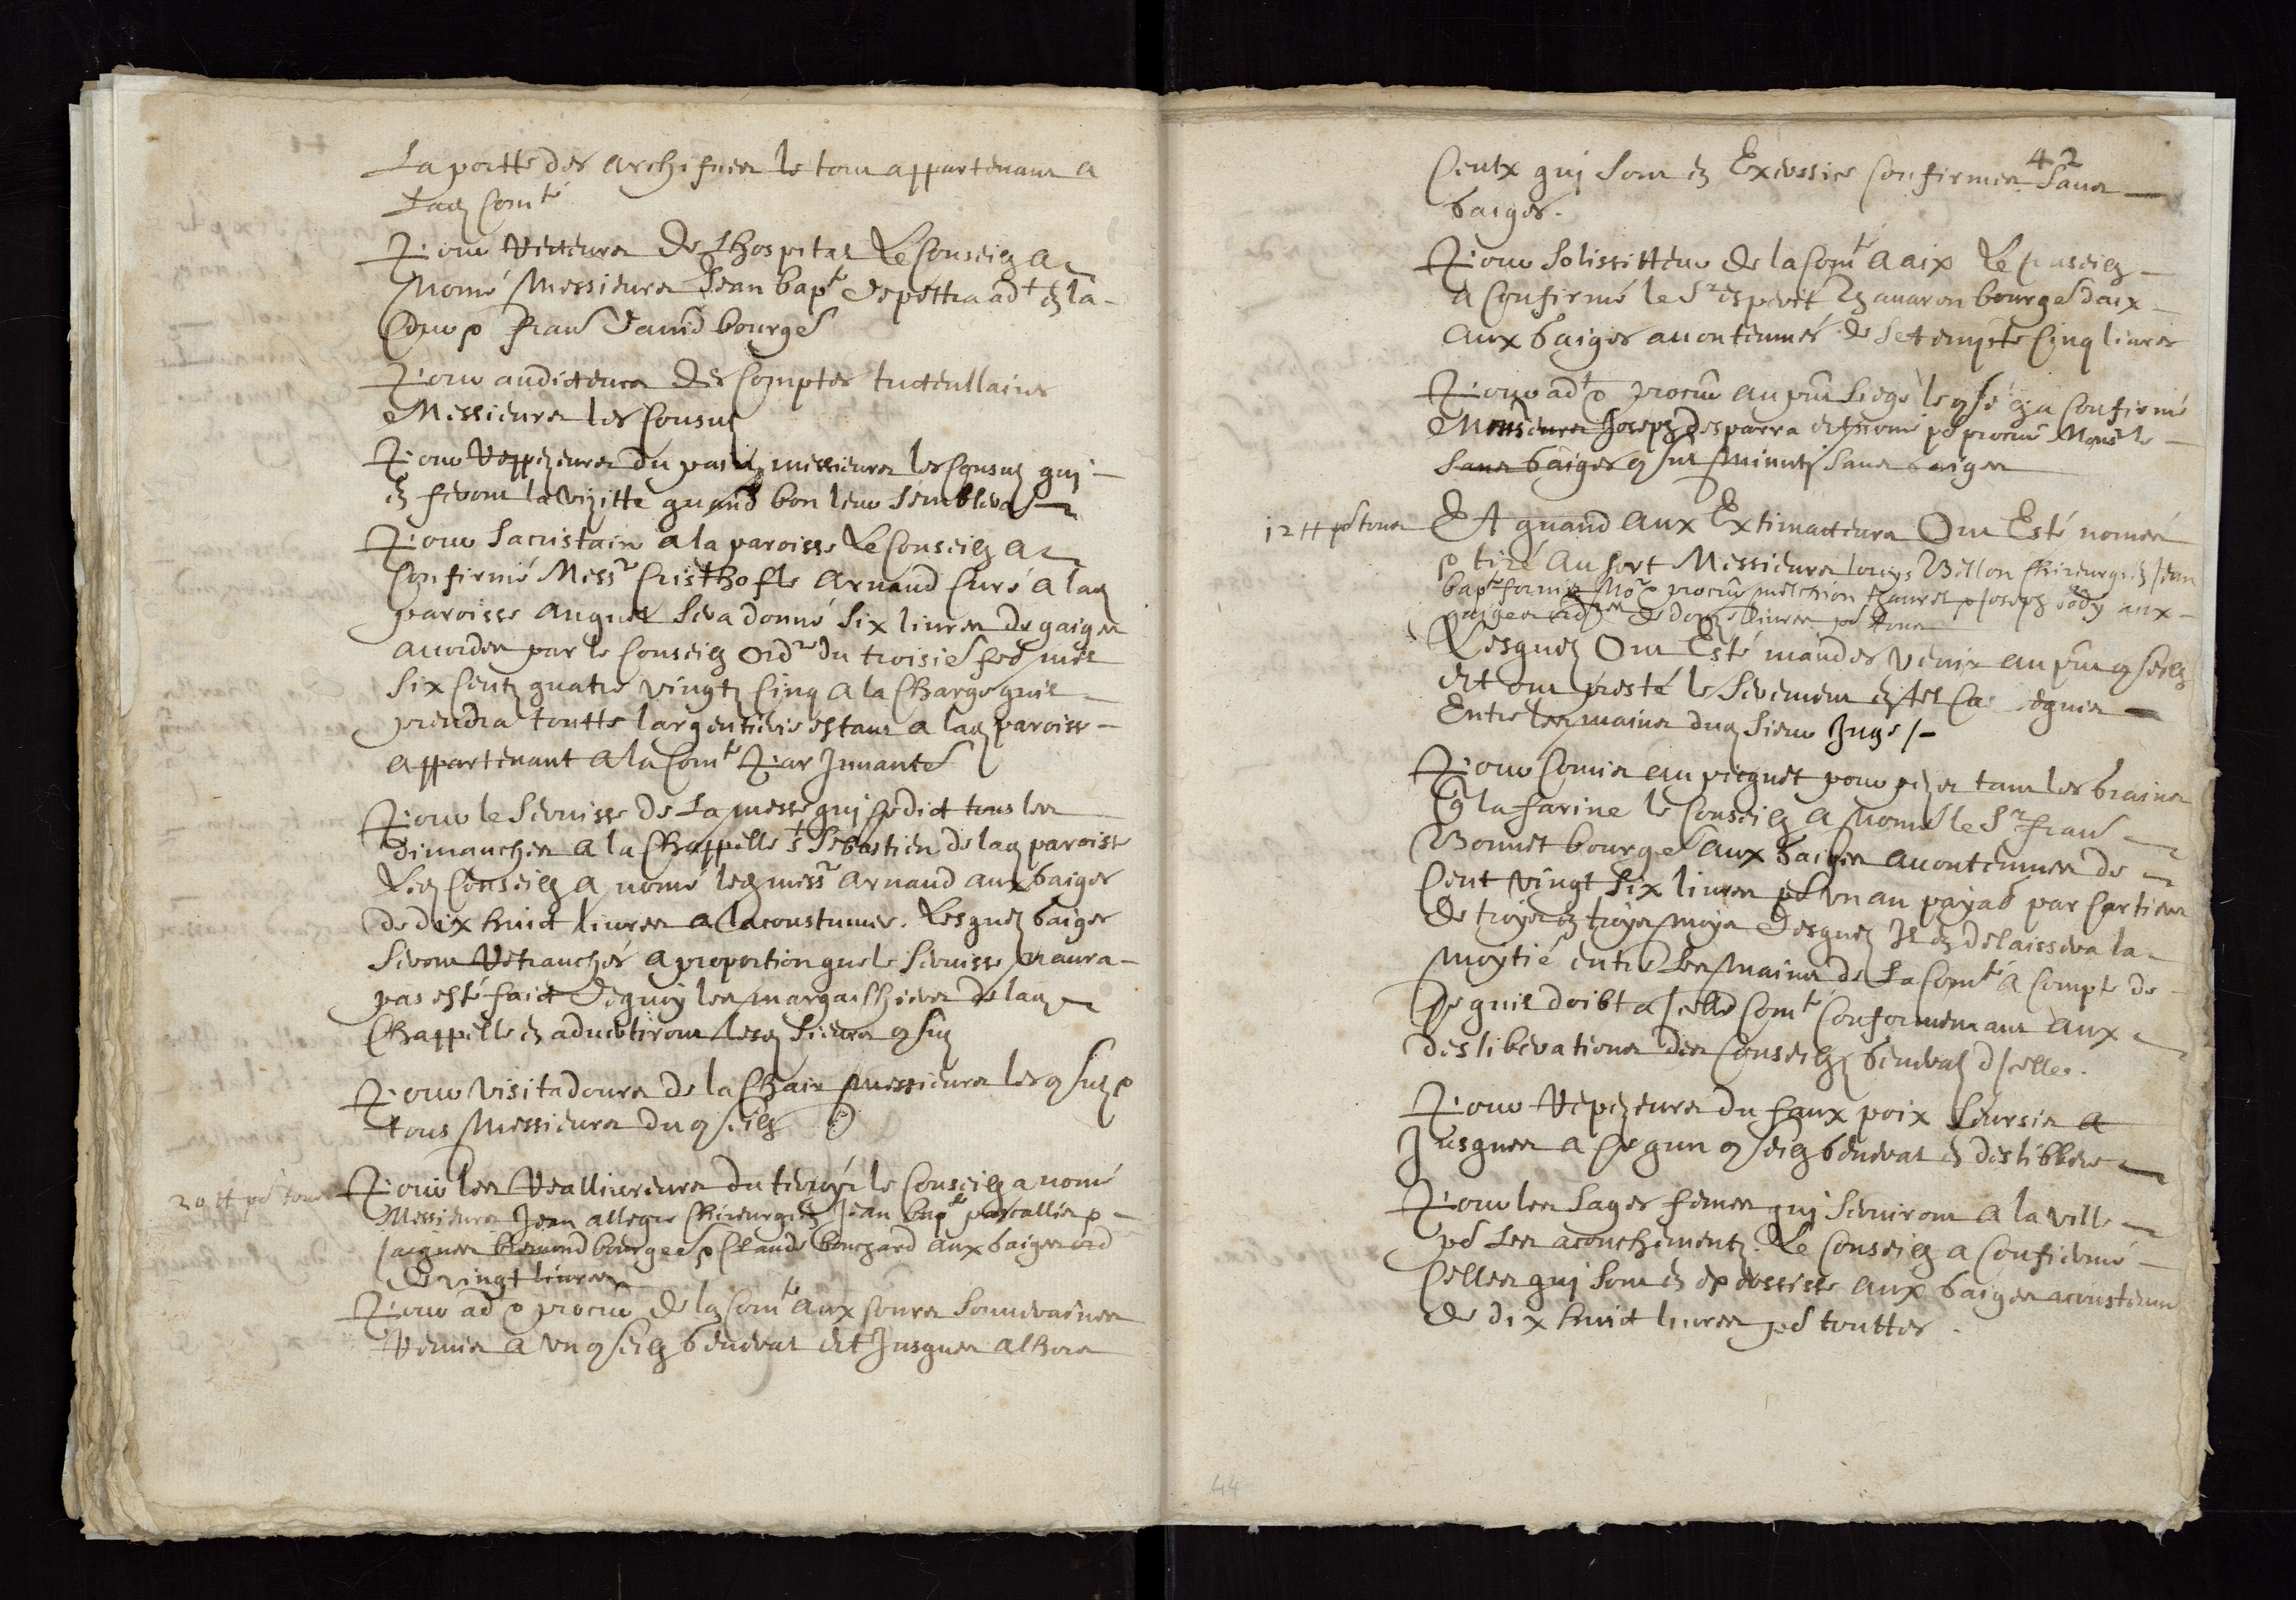 La portte des archifves le tout appartenant a
Lad Comte
Pour Recteurs de Lhospital Le Conseilh a
Nomé Messieurs Jean bapte depettra adt en la
Cour & frans david bourges
Pour auditteurs des Comptes tuttellaires
Messieurs les Consuls
Pour Reppezeurs du pain messieurs les Consulz quj
en feront la vizitte quand bon leur semblera
Pour Sacristain a la paroisse Le Conseilh a
Confirmé Messre Cristhofle arnaud Curé a lad
paroisse auquel sera donné six livres de gaiges
acordes par le Conseilh ordre du troisies feb mil
six Centz quatre vingtz Cinq a la Charge quil
prendra toutte largentterie estant a lad paroisse
appartenant a la Comte Par Jnvante
Pour le Servisse de La messe quj se dict tous les
dimanches a la Chappelle st Sebastien de lad paroisse
Led Conseilh a nomé led messr arnaud aux gaiges
de dix huict livres a lacoustumée. Lesquelz gaiges
seront Retranchés a proportion que le servisse naura
pas esté faict dequoy les margailhiers de lad
Chappelle en advertiront lesd sieurs consulz
Pour visitadours de la Chair messieurs les consulz &
tous messieurs du conseilh
20 ℔ pr tous
Pour les Reallivreurs du terroir le Conseilh a nomé
Messieurs Jean allegre Chirurgien Jean bapte pascallis &
Jacques bremond bourgeois & Claude bouchard aux gaiges ord
de vingt livres
Pour ad & procur de la Comte aux Cours souveraines
venir a un conseilh general et Jusques alhors
42
Ceulx quj sont en Exersice Confirmes sans
gaiges.
Pour solissitteur de la Comte a aix Le Conseilh
a Confirmé le Sr esperit chavaron bourges daix
aux gaiges acoutumés de septente Cinq livres
Pour adt & procur au pnt siege le conseilh a Confirmé
Monsieur Joseph desparra et nomé pr procur Monsr le
sans gaiges sans gaiges
12 ℔ pr tous
Et quand aux Extimatteurs Ont Esté només
& tiré au sort Messieurs louys Billon Chirurgien Jean
bapte fornier Nore & procur melchion & Joseph aux
gaiges ordres de douze livres pr tous
Lesquelz Ont Esté mandes venir au pnt conseilh
et ont presté le Serement en tel Cas Requis
Entre les mains dud sieur Juge /-
Pour Comis au piequet pour pezer tant les grains
que la farine le Conseilh a Nomé le Sr frans
Bonnet bourges aux gaiges acoutumes de
Cent vingt six livres pr un an payab par Cartiers
de troys en troys moys desquelz Il en delaissera la
moytié entre Les mains de La Comte a Compte de
Ce quil doibt a Jcelle Comte Conformemant aux
desliberations des Conseilhz generalz dJcelles.
Pour Repezeurs du faux poix seursis a
Jusques a ce quun conseilh general en deslibbere
Pour les sages femes quj serviront a la ville
pr Les acouchementz. Le Conseilh a Confirmé
Celles quj sont en exerssisse aux gaiges acoustumes
de dix huict livres pr touttes.
44